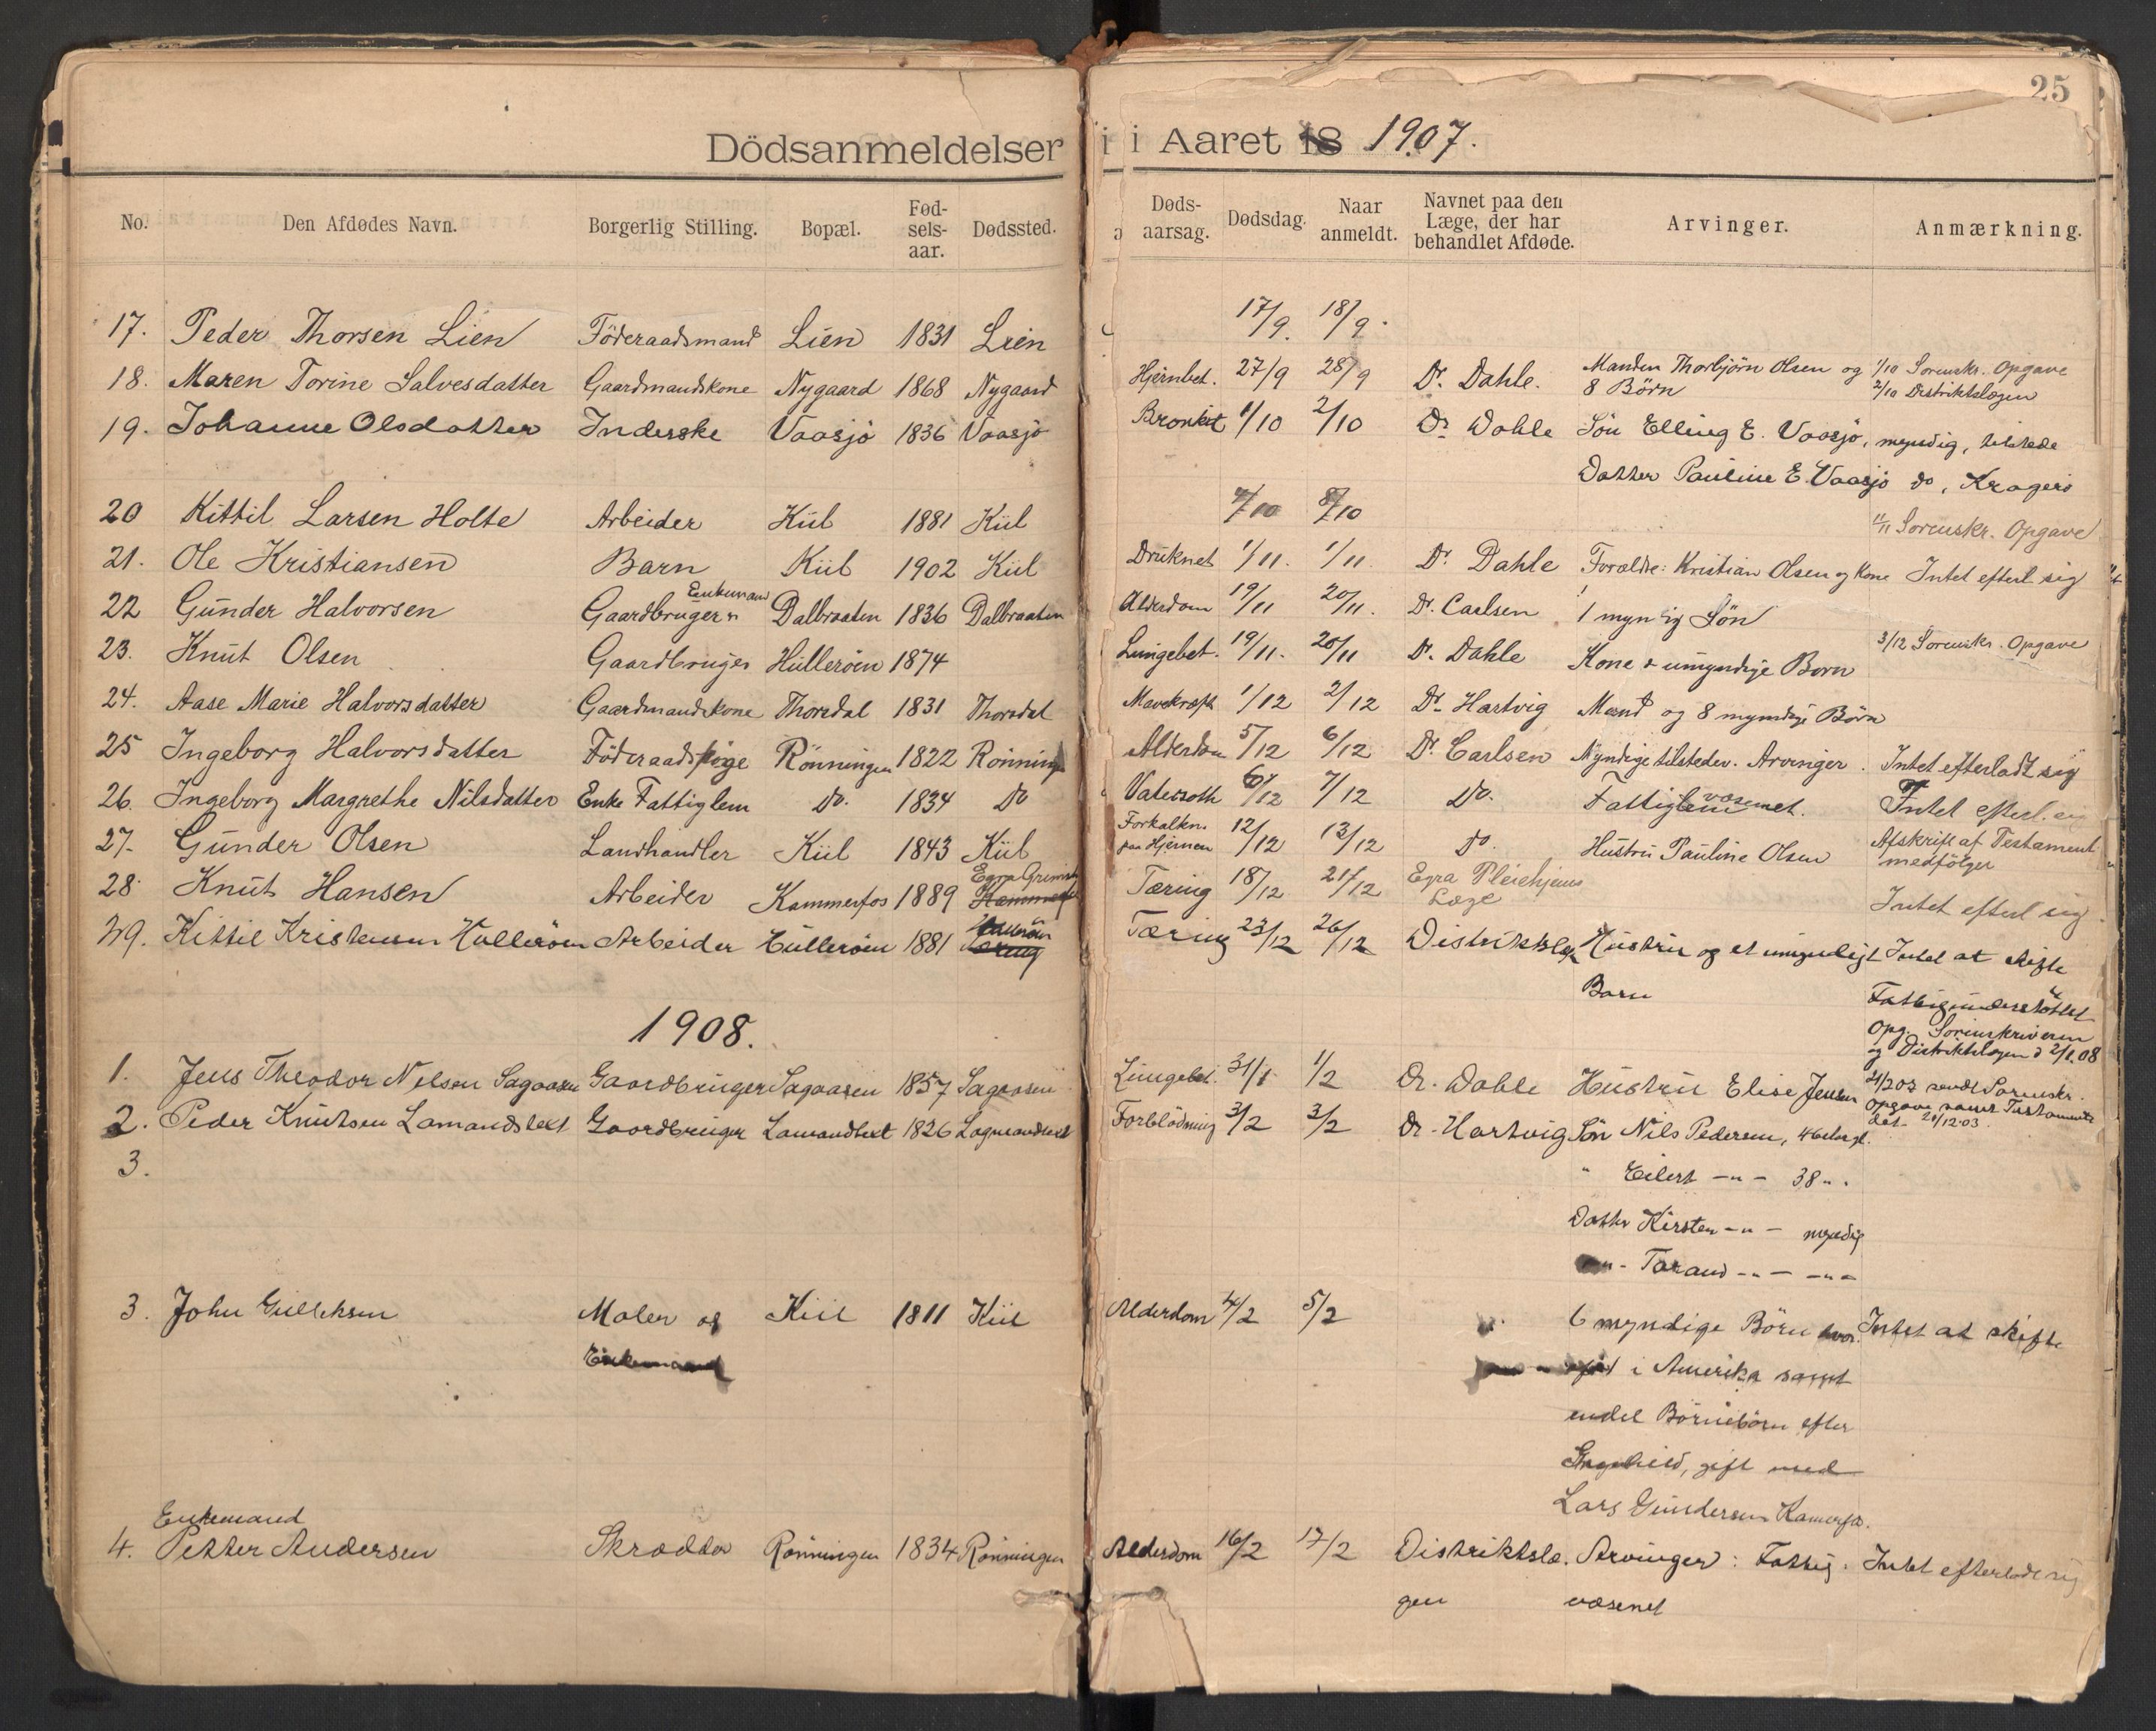 25
Dödsanmeldelser i i Aaret 18 1907.
No. Den Afdødes Navn. Borgerlig Stilling. Bopæl. Fødselsaar. Dødssted. Dødsaarsag. Dødsdag. Naar anmeldt. Navnet paa den Læge, der har behandlet Afdøde. Arvinger. Anmærkning.
17. Peder Thorsen Lien Föderaadsmand Lien 1831 Lien 17/9. 18/9.
18. Maren Torine Salvesdatter Gaardmandskone Nygaard 1868 Nygaard Hjernbet. 27/9 28/9 Dr. Dahle. Manden Thorbjörn Olsen og 1/10 Sorenskr. Opgave
8 Börn 2/10 Distriktslægen
19. Johanne Olsdatter Inderske Vaasjö 1836 Vaasjö Bronkit 1/10 2/10 Dr Dahle Sön Elling E. Vaasjö, myndig, tilstede
Datter Pauline E. Vaasjö do, Kragerö
20 Kittil Larsen Holte Arbeider Kiil 1881 Kiil 7/10 8/10
11/11 Sorenskr. Opgave
21. Ole Kristiansen Barn Kiil 1902 Kiil Druknet 1/11. 1/11. Dr. Dahle Forældre: Kristian Olsen og Kone Intet efterl sig
Enkemand
22 Gunder Halvorsen Gaardbruger Dalbraaten 1836 Dalbraaten Alderdom 19/11 20/11. Dr. Carlsen 1 myndig Sön
23. Knut Olsen Gaardbruger Hulleröen 1874 Lungebet. 19/11. 20/11 Dr. Dahle Kone & umyndige Born 3/12 Sorenskr. Opgave
24. Aase Marie Halvorsdatter Gaardmandskone Thorsdal 1831 Thorsdal Mavekræft 1/12 2/12 Dr. Hartvig Mand og 8 myndige Börn
25 Ingeborg Halvorsdatter Föderaadspige Rönningen 1822 Rönningen Alderdom 5/12 6/12 Dr. Carlsen Myndige tilstedev. Arvinger. Intet efterladt sig
26. Ingeborg Margrethe Nilsdatter Enke Fattiglem Do. 1834 Do Vatersoth 6/12 7/12 Do. Fattigvæsenet. Intet efterl. sig
27. Gunder Olsen Landhandler Kiil 1843 Kiil Forkalkn. paa Hjernen 12/12 13/12 Do. Hustru Pauline Olsen Afskrift af Testament
medfölger
28. Knut Hansen Arbeider Kammerfos 1889 Tæring 18/12 21/12 Egra Pleiehjems
Læge Intet efterl sig.
29. Kittil Kristensen Hulleröen Arbeider Hulleröen 1881 Hulleröen Tæring 23/12 26/12 Distriktslæg Hustru og et umyndigt Intet at skifte
Barn Fattigunderstöttet
1908.
Opg. Sorenskriveren
og Distriktslægen d 2/1 08
1. Jens Theodor Nilsen Sagaasen Gaardbruger Sagaasen 1857 Sagaasen Lungebet. 31/1 1/2 Dr. Dahle Hustru Elise Jensen 21/2 08 sendt Sorenskr.
Opgave samt Testamente
dat. 21/12.03.
2. Peder Knutsen Lamandslext Gaardbruger Lamandlext 1826 Forblödning 3/2 3/2 Dr. Hartvig Sön Nils Pedersen, 46
3.
" Eilert -"- 38 ".
Datter Kirsten -"- myndig
-"- Tarand -"- -"-
3. John Gulleksen Maler og Kiil 1811 Kiil Alderdom 4/2 5/2 6 myndige Börn hvor. Intet at skifte
Enkemand
i Amerika samt
endel Börnebörn efter
Ingebild, gift med
Lars Gundersen Kamerfos.
Enkemand
4. Petter Andersen Skrædder Rönningen 1834 Rönningen Alderdom 16/2 17/2 Distriktslæ. Arvinger: Fattig. Intet efterladt sig
gen væsenet